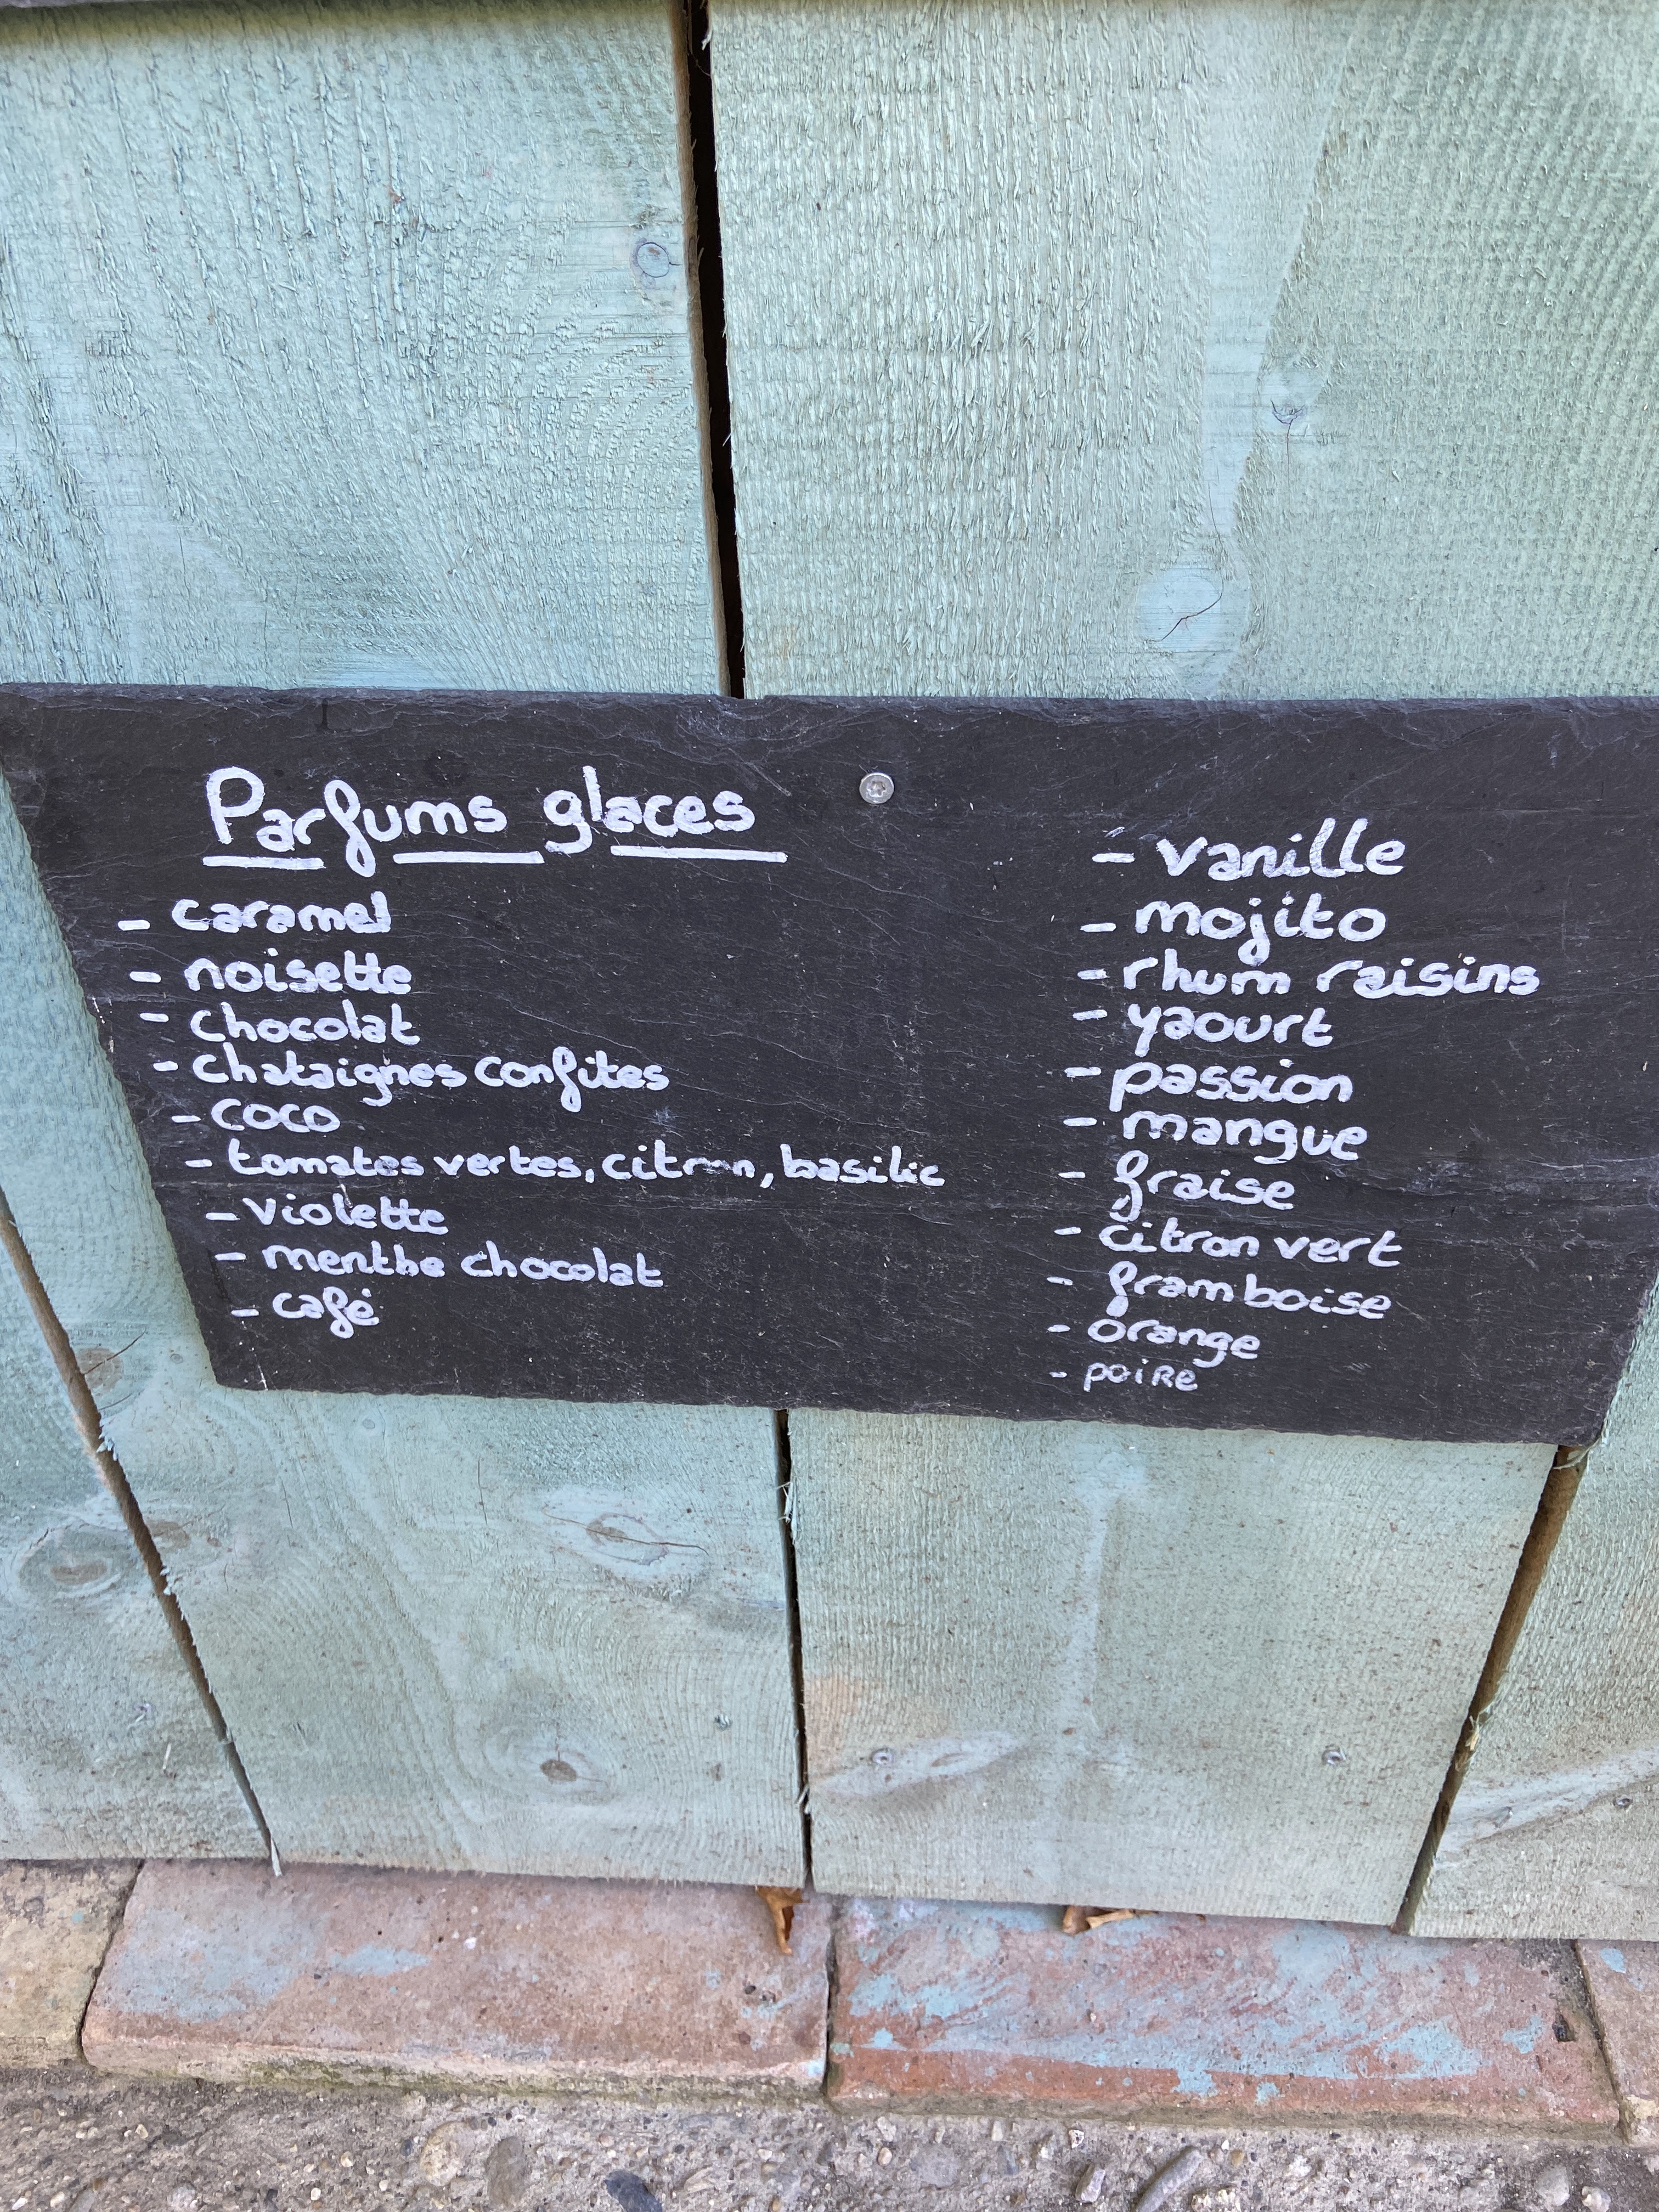 Parfums glaces
- caramel
- noisette
- chocolat
- chataignes confites
- coco
- tomates vertes, citron, basilic
- violette
- menthe chocolat
- café
- vanille
- mojito
- rhum raisins
- yaourt
- passion
- mangue
- fraise
- citron vert
- framboise
- orange
- poire